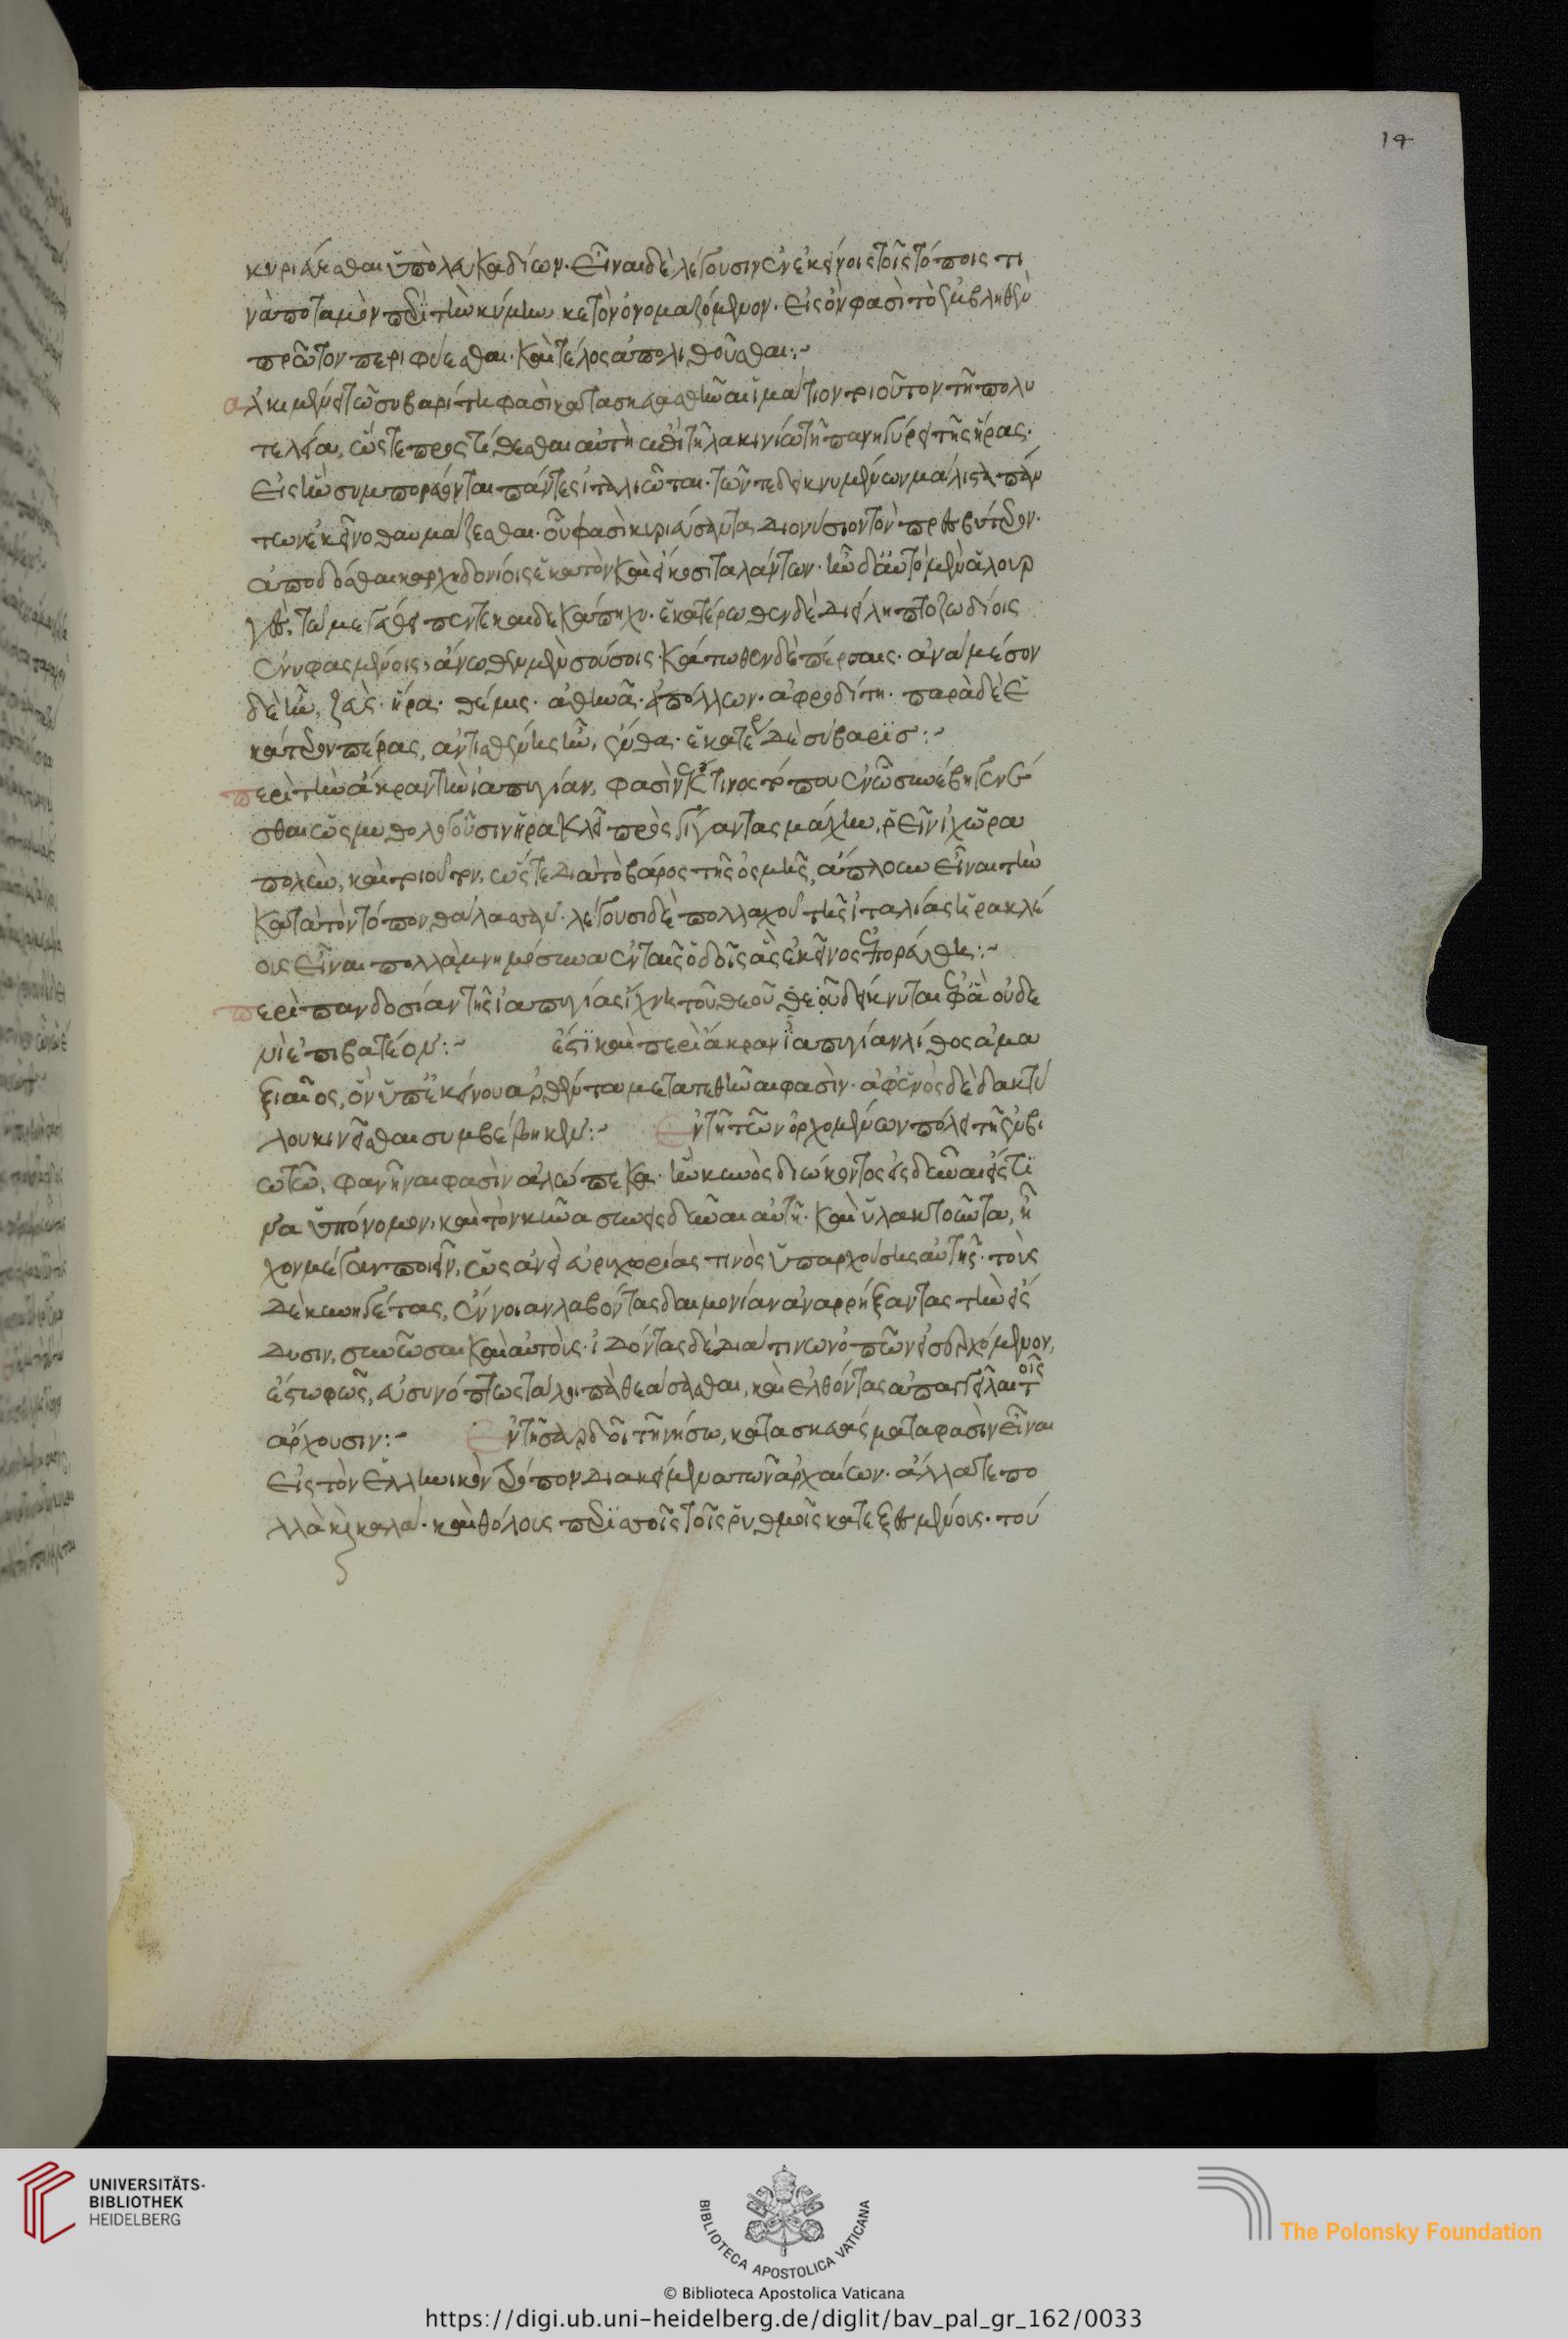 14
κυριεύεσθαι ὑπὸ λευκαδίων. Εἶναι δὲ λέγουσιν ἐν ἐκείνοις τοῖς τόποις τι
νὰ ποταμὸν περὶ τὴν κύμην, κετὸν ὀνομαζόμενον. Εἰς ὃν φασὶ τὸ ἐμβληθὲν
πρῶτον περιφύεσθαι. Καὶ τέλος ἀπολιθοῦσθαι:~
ἀλκιμένει τῶ συβαρίτη φασὶ κατασκευασθῆναι ἱμάτιον τοιοῦτον τῆ πολυ
τελεία, ὥστε προστίθεσθαι αὐτὴ ἐπὶ τῆ λακινίω τῆ πανηγύρει τῆς ἥρας.
Εἰς ἣν συμπορεύονται πάντες ἰταλιῶται. τῶν τε δεικνυμένων μάλιστα πάν
των ἐκεῖνο θαυμάζεσθαι. οὗ φασὶ κυριεύσαντα διονύσιον τὸν πρεσβύτερον.
ἀποδόσθαι καρχηδονίοις ἑκατὸν καὶ εἴκοσι ταλάντων. ἦν δ' αὐτὸ μὲν ἁλουρ
γὲς, τῶ μεγέθει πεντεκαιδεκάπηχυ. ἑκατέρωθεν δὲ διείληπτο ζωδίοις
ἐνυφασμένοις, ἄνωθεν μὲν σούσοις. Κάτωθεν δὲ πέρσαις. ἀνὰ μέσον
δὲ ἦν, ζεὺς. ἥρα. θέμις. ἀθηνᾶ. ἀπόλλων. ἀφροδίτη. παρὰ δὲ ἑ
κάτερον πέρας, ἀντισθένης ἦν, ζύθα. ἑκατέρ δὲ σύβαρις:~
περὶ τὴν ἄκραν τὴν ἰαπυγίαν, φασὶν ἔκ τινος τόπου ἐν ὧ συνέβη γενέ
σθαι ὡς μυθολογοῦσιν ἡρακλεῖ πρὸς γίγαντας μάχην, ῥεῖν ἰχῶρα
πολὺν, καὶ τοιοῦτον, ὥστε διὰ τὸ βάρος τῆς ὀσμῆς, ἄπλουν εἶναι τὴν
κατὰ τὸν τόπον θάλασσαν. λέγουσι δὲ πολλαχοῦ τῆς ἰταλίας ἡρακλέ
ους εἶναι πολλὰ μνημόσυνα ἐν ταῖς ὁδοῖς ἃς ἐκεῖνος ἐπορεύθη:~
περὶ πανδοσίαν τῆς ἰαπυγίας ἴχνη τοῦ θεοῦ θεοῦ δείκνυται ἐφ' ἃ οὐδε
νὶ ἐπιβατέον:~ ἔστι καὶ περὶ ἄκραν ἰαπυγίαν λίθος ἁμα
ξιαῖος, ὃν ὑπ' ἐκείνου ἀρθέντα μετατεθῆναι φασὶν. ἀφ' ἑνὸς δὲ δακτύ
λου κινεῖσθαι συμβέβηκεν:~ Ἐν τῆ τῶν ὀρχομενίων πόλει τῆ ἐν βοι
ωτία, φανῆναι φασὶν ἀλώπεκα. ἣν κυνὸς διώκοντος εἰσδῦναι εἴς τι
να ὑπόνομον, καὶ τὸν κύνα συνεισδῦναι αὐτῆ. καὶ ὑλακτοῦντα, ἦ
χον μέγαν ποιεῖν, ὡς ἂν εἰ εὐρυχωρίας τινὸς ὑπαρχούσης αὐτῆς. τοὺς
δὲ κυνηγέτας, ἔννοιαν λαβόντας δαιμονίαν ἀναρρήξαντας τὴν εἴς
δυσιν, συνῶσαι καὶ αὐτοὺς. ἰδόντας δὲ διά τινων ὀπῶν εἰσδεχόμενον,
ἔσω φῶς, εὐσυνόπτως τὰ λοιπὰ θεάσασθαι, καὶ ἐλθόντας ἀπαγγεῖλαι τοῖς
ἄρχουσιν:~ Ἐν τῆ σαρδοῖ τῆ νήσω, κατασκευάσματα φασὶν εἶναι
εἰς τὸν ἑλληνικὸν τρόπον διακείμενα τῶν ἀρχαίων. ἄλλα τε πο
λλὰ καὶ καλά. καὶ θόλους περισσοῖς τοῖς ῥυθμοῖς κατεξεσμένους. τού
UNIVERSITÄTS-
BIBLIOTHEK
HEIDELBERG
BIBLIOTECA APOSTOLICA VATICANA
The Polonsky Foundation
© Biblioteca Apostolica Vaticana
https://digi.ub.uni-heidelberg.de/diglit/bav_pal_gr_162/0033